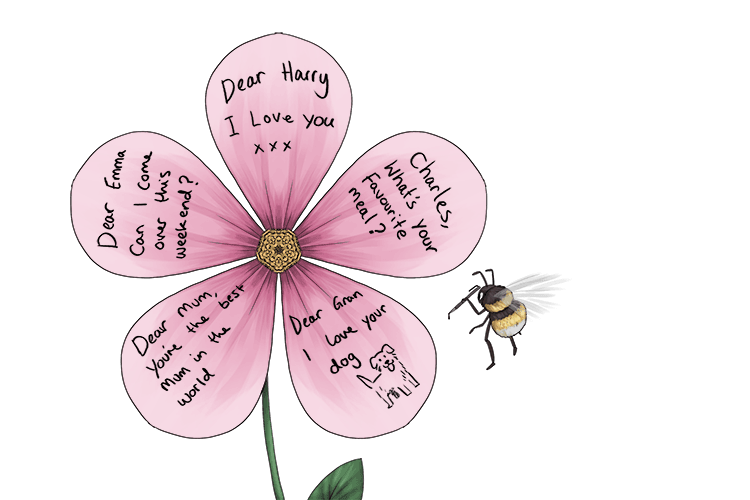 Dear Harry
I Love you
x x x
Charles,
What's your
Favourite
meal?
Dear Gran
I love your
dog
Dear Mum,
You're the best
Mum in the
world
Dear Emma
Can I come
over this
weekend?